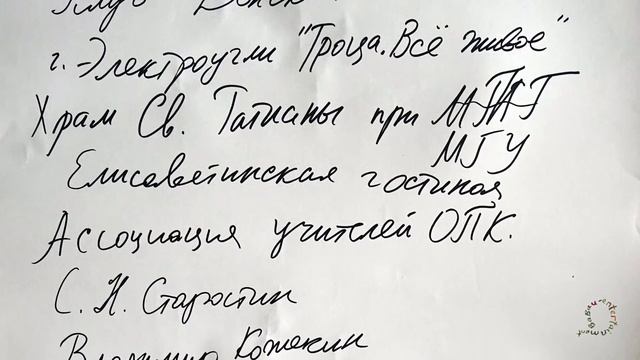 Клуб
г. Электроугли "Троца. Всё живое"
Храм Св. Татианы при МПГ
МГУ
Елисаветинская гостиная
Ассоциация учителей ОПК.
С. Н. Старостин
Владимир Кожекин